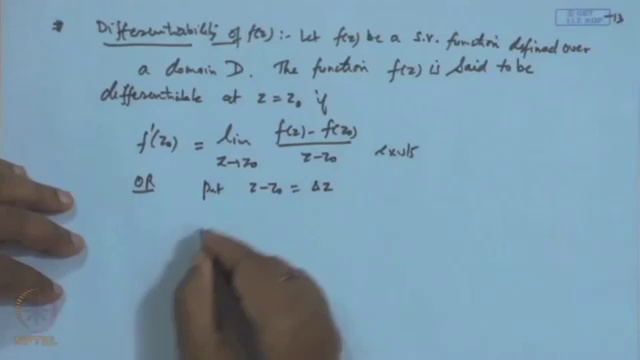 * Differentiability of f(z) :- Let f(z) be a s.v. function defined over
a domain D. The function f(z) is said to be
differentiable at z = z₀ if
f'(z₀) = lim z→z₀ f(z) - f(z₀) / z - z₀ exists
OR put z - z₀ = Δz
NPTEL